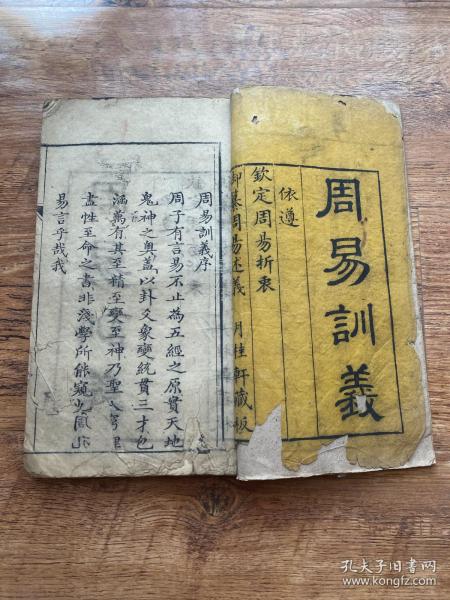 周易訓義
依遵
欽定周易折衷
御纂周易述義 月桂軒藏板
周易訓義序
周子有言易不止為五經之原實天地
鬼神之奧蓋以卦爻象變統貫三才包
涵萬有其至精至變至神乃聖人窮理
盡性至命之書非淺學所能窺也
易言乎哉我
孔夫子旧书网
www.kongfz.com